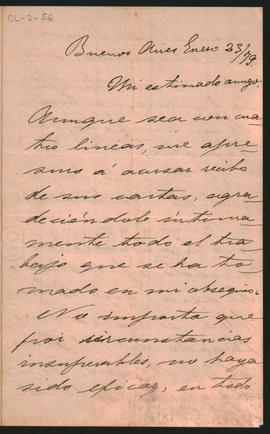 DL-2-56
Buenos Aires Enero 23/79.
Mi estimado amigo:
Aunque sea con cua
tro lineas, me apre
suro á acusar recibo
de sus cartas, agra
deciéndole íntima
mente todo el tra
bajo que se ha to
mado en mi obsequio.
No importa que
por circunstancias
insuperables, no haya
sido eficaz, en todo